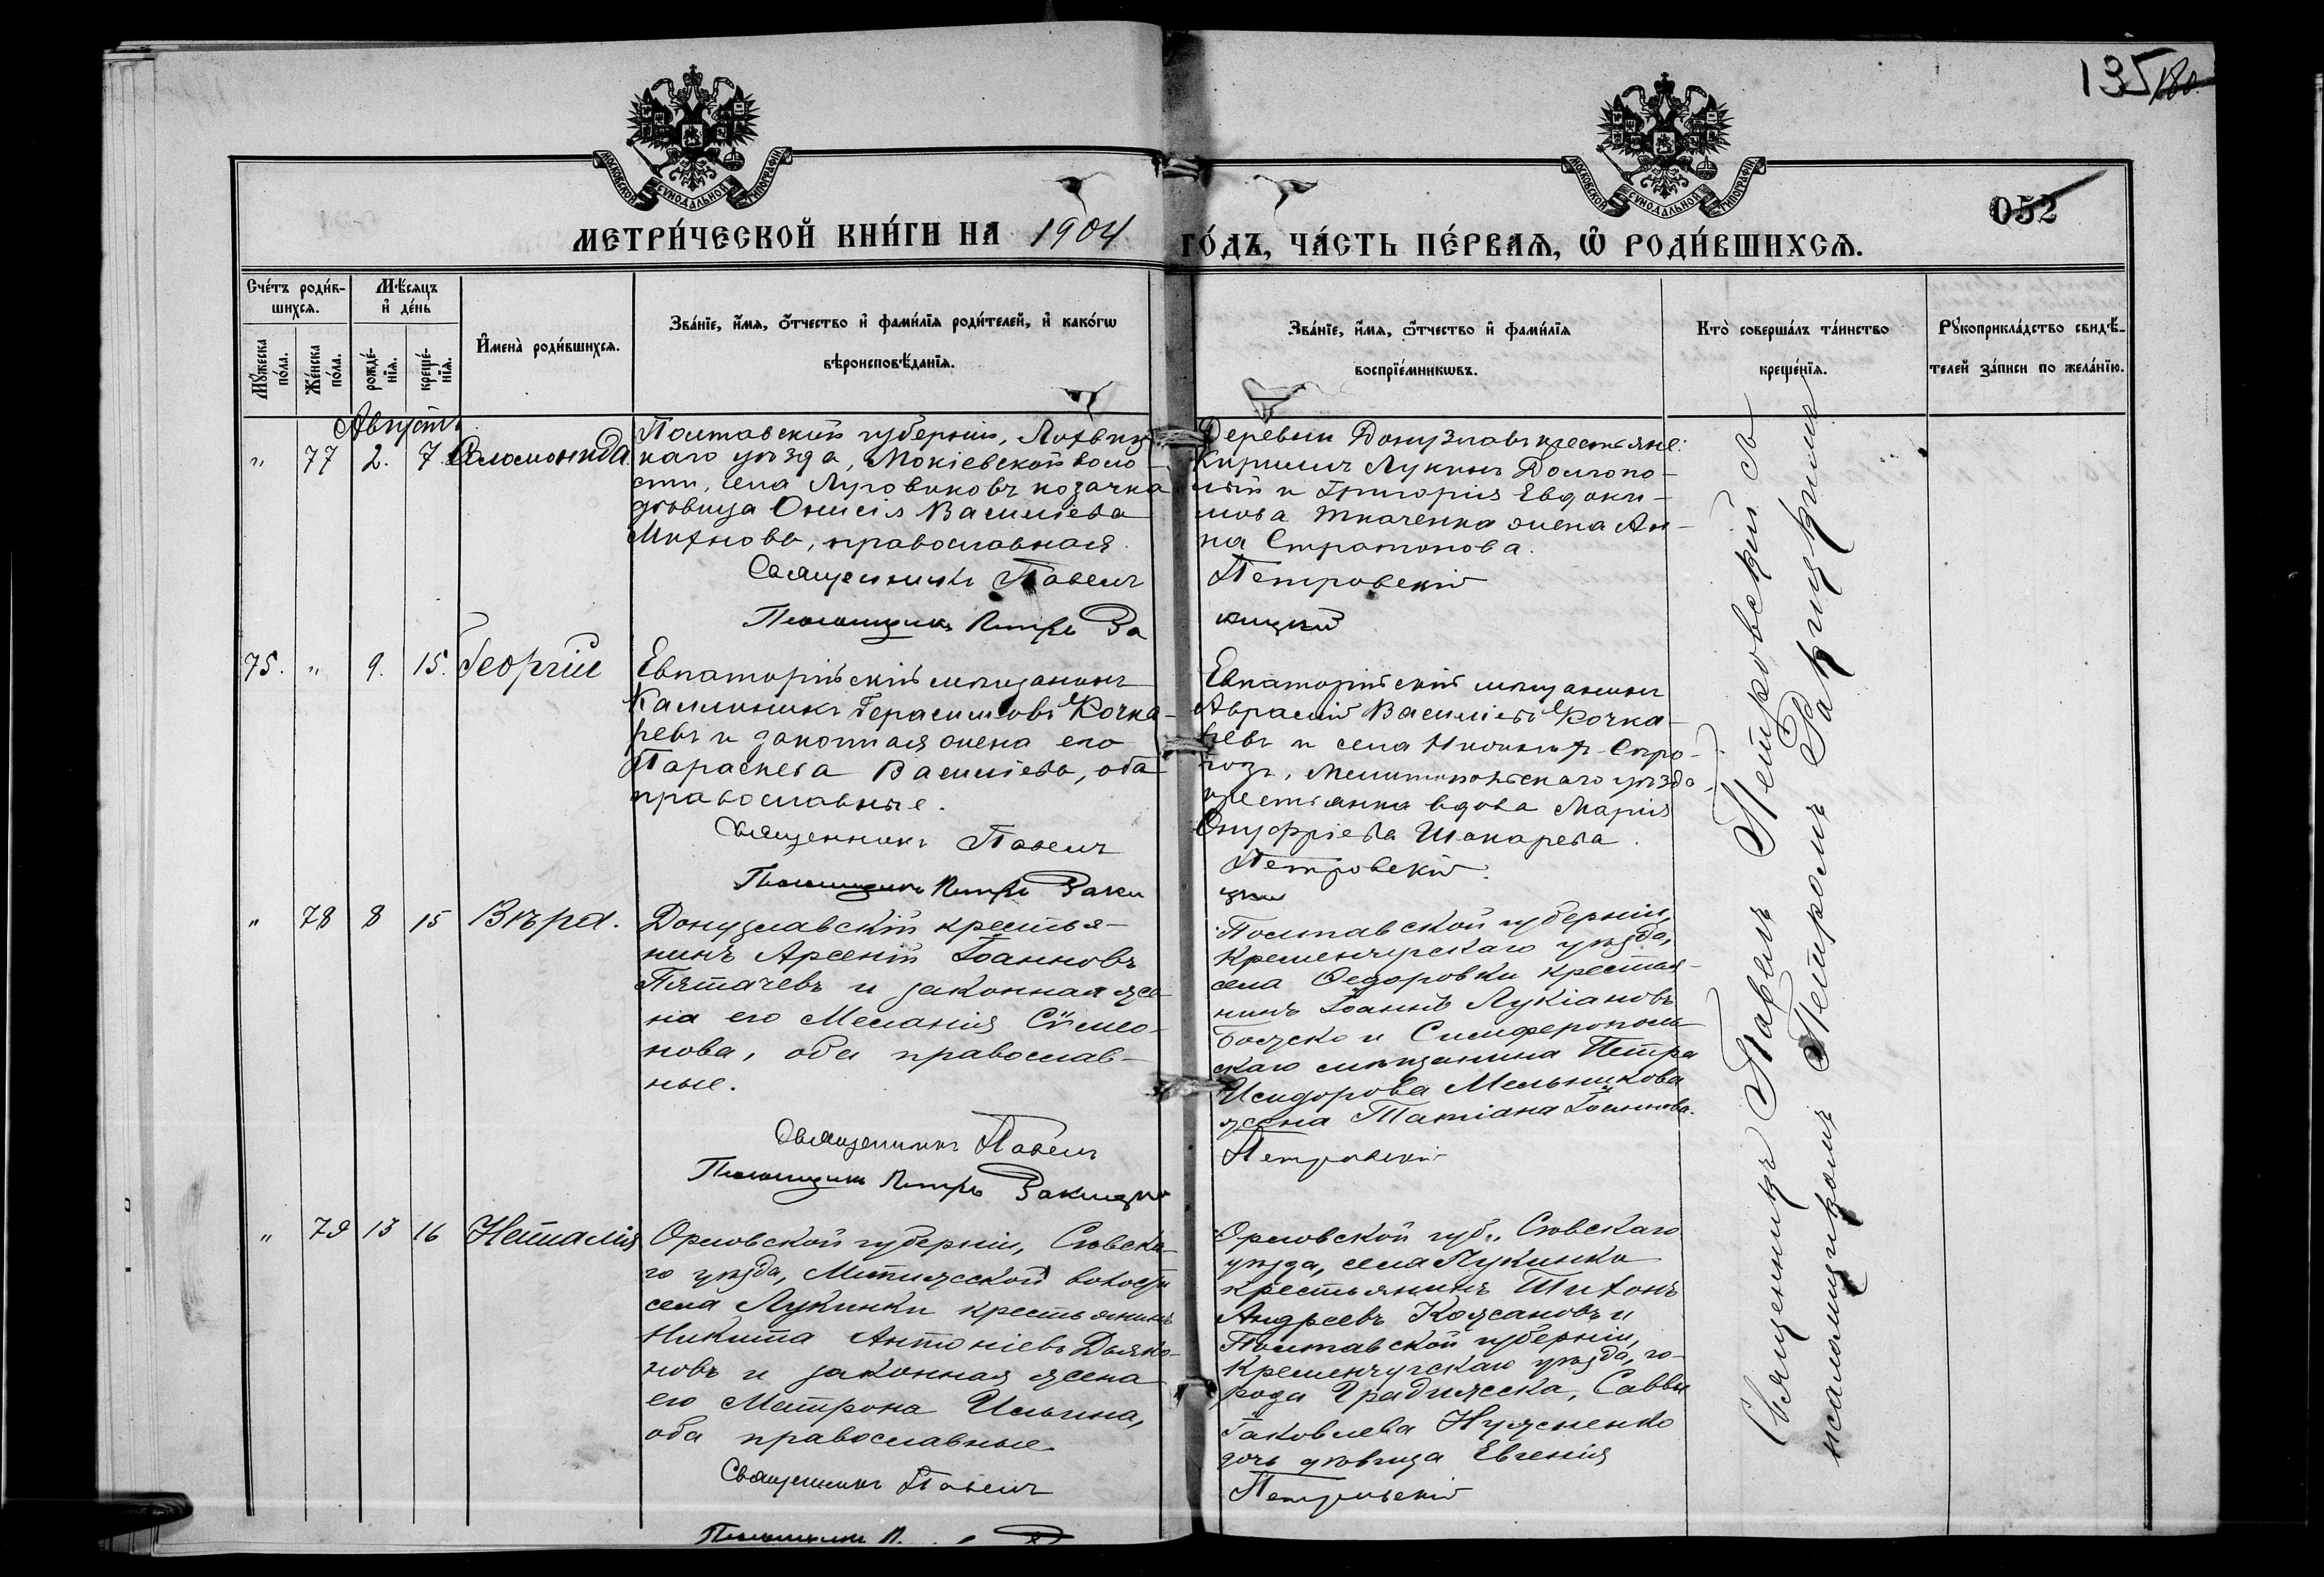 135 180.
МОСКОВСКОЙ СУНОДАЛЬНОЙ ТИПОГРАФІИ
МОСКОВСКОЙ СУНОДАЛЬНОЙ ТИПОГРАФІИ
052
МЕТРИ́ЧЕСКОЙ КНИ́ГИ НА 1904 ГО́ДЪ, ЧА́СТЬ ПЕ́РВАЯ, Ѡ҆ РОДИ́ВШИХСЯ.
Сче́тъ роди́в-
шихся.
Мꙋ́жеска по́ла.
Же́нска по́ла.
Мѣ́сяцъ
и҆ де́нь
рожде́-
нїя.
креще́-
нїя.
И҆мена̀ роди́вшихся.
Зва́нїе, и҆́мя, ѻ҆́тчество и҆ фами́лїя роди́телей, и҆ како́гѡ
вѣроисповѣ́данїя.
Зва́нїе, и҆́мя, ѻ҆́тчество и҆ фами́лїя
воспрїе́мникѡвъ.
Кто̀ соверша́лъ та́инство
креще́нїя.
Рꙋкоприкла́дство свидѣ́-
телей за́писи по жела́нїю.
Августъ
" 77 2. 7. Соломонида.
Полтавской губерніи, Лохвиц-
каго уѣзда, Мокіевской воло-
сти, села Луговиковъ козачка
дѣвица Онисія Васильева
Михнова, православная.
Священникъ Павелъ
Псаломщикъ Петръ За
Деревни Донузлавъ крестьяне:
Кириллъ Лукинъ Долгопо-
лый и Григорія Евдоки-
мова Ткаченка жена Ан-
на Стратонова.
Петровскій
кицкій
75. " 9. 15. Георгій
Евпаторійскій мѣщанинъ
Каллиникъ Герасимовъ Кочка-
ревъ и законная жена его
Параскева Васильева, оба
православные.
Священникъ Павелъ
Псаломщикъ Петръ Заки
Евпаторійскій мѣщанинъ
Аврамій Васильевъ Кочка-
ревъ и села Нижнихъ-Сиро-
гозъ, Мелитопольскаго уѣзда
крестьянка вдова Марія
Онуфріева Шокарева.
Петровскій.
цкій
" 78 8 15 Вѣра.
Донузлавскій крестья-
нинъ Арсеній Іоанновъ
Пятачевъ и законная же-
на его Меланія Сѵмео-
нова, оба православ-
ные.
Священникъ Павелъ
Псаломщикъ Петръ Закицкій
Полтавской губерніи,
Кременчугскаго уѣзда,
села Ѳедоровки крестья-
нинъ Іоаннъ Лукіановъ
Божко и Симферополь-
скаго мѣщанина Петра
Исидорова Мельникова
жена Татіана Іоаннова.
Петровскій
" 79 13 16 Наталія
Орловской губерніи, Сѣвска-
го уѣзда, волости
села Лукинки крестьянинъ
Никита Антоніевъ Дьяко-
новъ и законная жена
его Матрона Ильина,
оба православные.
Священникъ Павелъ
Псаломщикъ П.
Орловской губ., Сѣвскаго
уѣзда, села Лукинка
крестьянинъ Тихонъ
Андреевъ Кожановъ и
Полтавской губерніи,
Кременчугскаго уѣзда, го-
рода Градижска, Саввы
Іаковлева Нужненко
дочь дѣвица Евгенія
Петровскій
Священникъ Павелъ Петровскій съ
псаломщикомъ Петромъ Закицкимъ